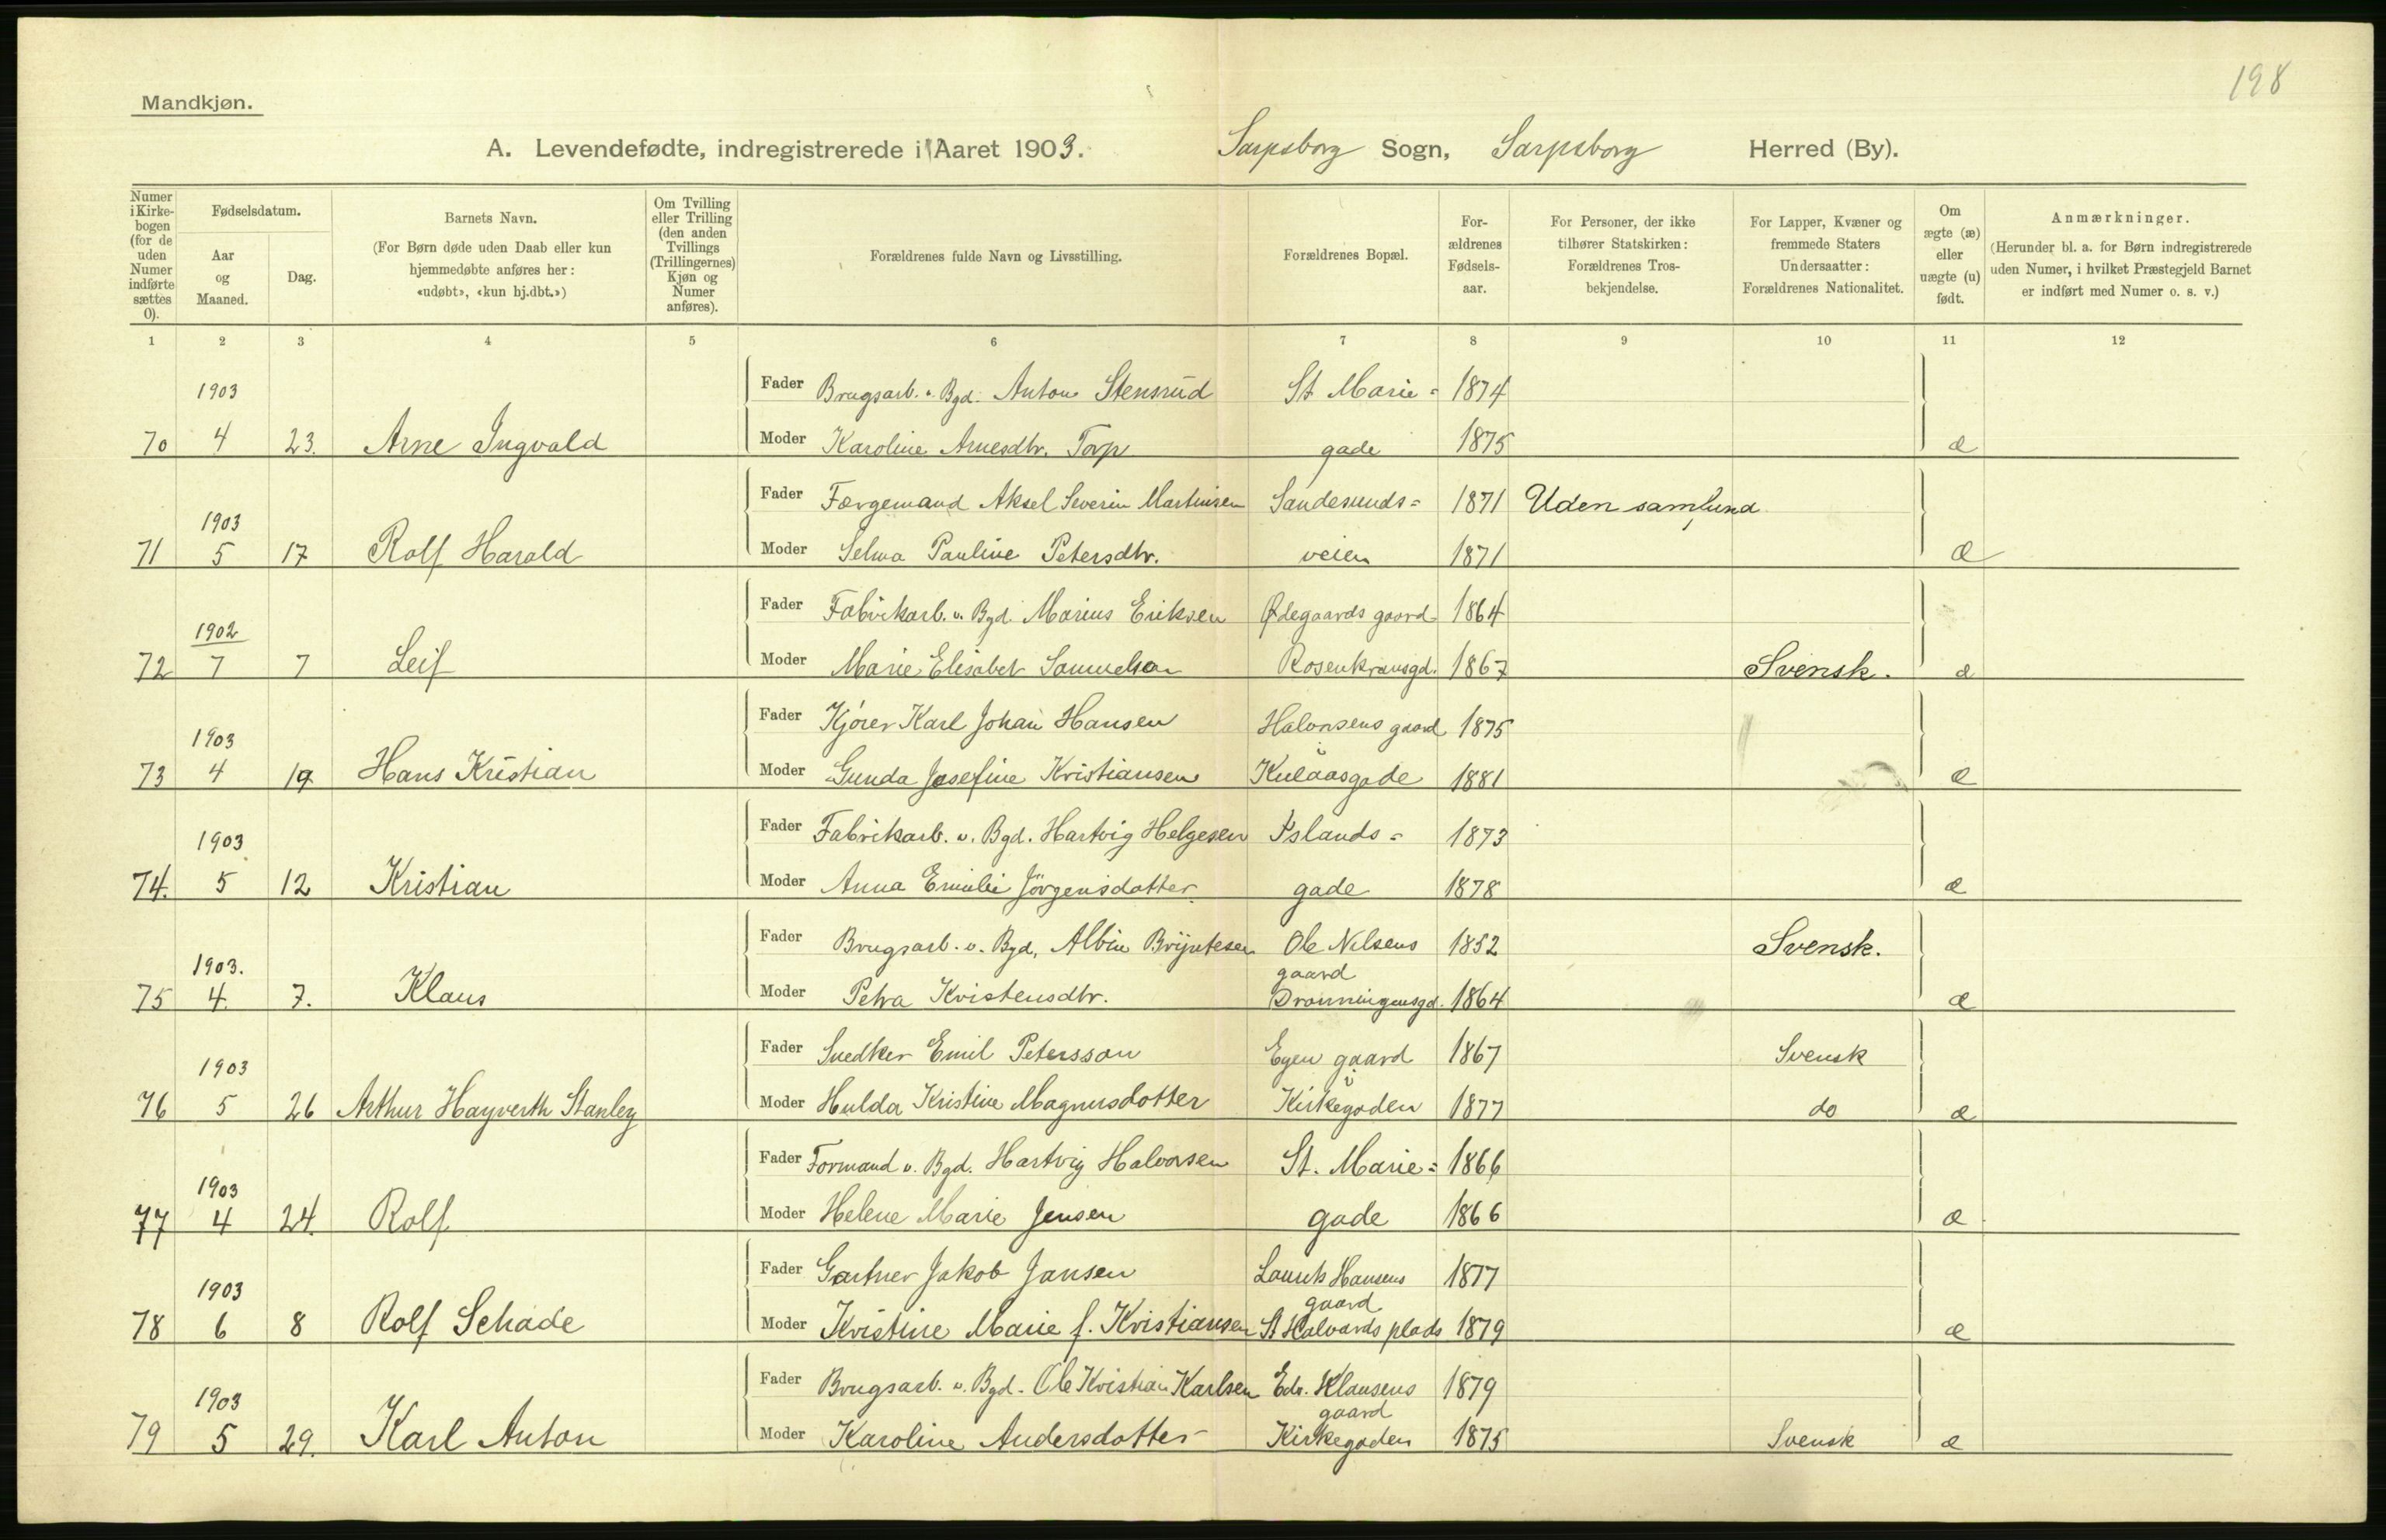 198
Mandkjøn.
A. Levendefødte, indregistrerede i Aaret 1903. Sarpsborg Sogn, Sarpsborg Herred (By).
Numer i Kirke-bogen (for de uden Numer indførte sættes 0).
Fødselsdatum.
Aar og Maaned.
Dag.
Barnets Navn.
(For Børn døde uden Daab eller kun hjemmedøbte anføres her: «udøbt», «kun hj.dbt.»)
Om Tvilling eller Trilling (den anden Tvillings (Trillingernes) Kjøn og Numer anføres).
Forældrenes fulde Navn og Livsstilling.
Forældrenes Bopæl.
For-ældrenes Fødsels-aar.
For Personer, der ikke tilhører Statskirken: Forældrenes Tros-bekjendelse.
For Lapper, Kvæner og fremmede Staters Undersaatter: Forældrenes Nationalitet.
Om ægte (æ) eller uægte (u) født.
Anmærkninger.
(Herunder bl. a. for Børn indregistrerede uden Numer, i hvilket Præstegjeld Barnet er indført med Numer o. s. v.)
1 2 3 4 5 6 7 8 9 10 11 12
1903 Fader Brugsarb. v. Bgd. Anton Stensrud St. Marie= 1874
70 4 23. Arne Ingvald Moder Karoline Arnesdtr. Torp gade 1875 æ
Fader Færgemand Aksel Severin Martinsen Sandesunds= 1871 Uden samfund
1903
71 5 17 Rolf Harald Moder Selma Pauline Petersdtr. veien 1871 æ
Fader Fabrikarb. v. Bgd. Marius Eriksen Ødegaards gaard 1864
1902
72 7 7 Leif Moder Marie Elisabet Samuelson Rosenkransgd. 1867 Svensk. æ
Fader Kjører Karl Johan Hansen Halvorsens gaard 1875
1903
73 4 19 Hans Kristian Moder Gunda Josefine Kristiansen Kulaasgade 1881 æ
1903 Fader Fabrikarb. v. Bgd. Hartvig Helgesen Islands= 1873
74. 5 12 Kristian Moder Anna Emilie Jörgensdatter gade 1878 æ
Fader Brugsarb. v. Bgd. Albin Bryntesen Ole Nilsens 1852 Svensk.
1903. gaard
75 4. 7. Klaus Moder Petra Kristensdtr. Dronningensgd. 1864 æ
1903 Fader Snedker Emil Petersson Egen gaard 1867 Svensk
i
76 5 26 Arthur Hayverth Stanley Moder Hulda Kristine Magnusdotter Kirkegaden 1877 do æ
Fader Formand v. Bgd. Hartvig Halvorsen St. Marie= 1866
1903
77 4 24. Rolf Moder Helene Marie Jensen gade 1866 æ
Fader Gartner Jakob Jansen Laurits Hansens 1877
1903 gaard
78 6 8 Rolf Schade Moder Kristine Marie f. Kristiansen St Halvards plads 1879 æ
Fader Brugsarb. v. Bgd. Ole Kristian Karlsen Edv. Klausens 1879
1903 gaard
79 5 29. Karl Anton Moder Karoline Andersdotter Kirkegaden 1875 Svensk æ